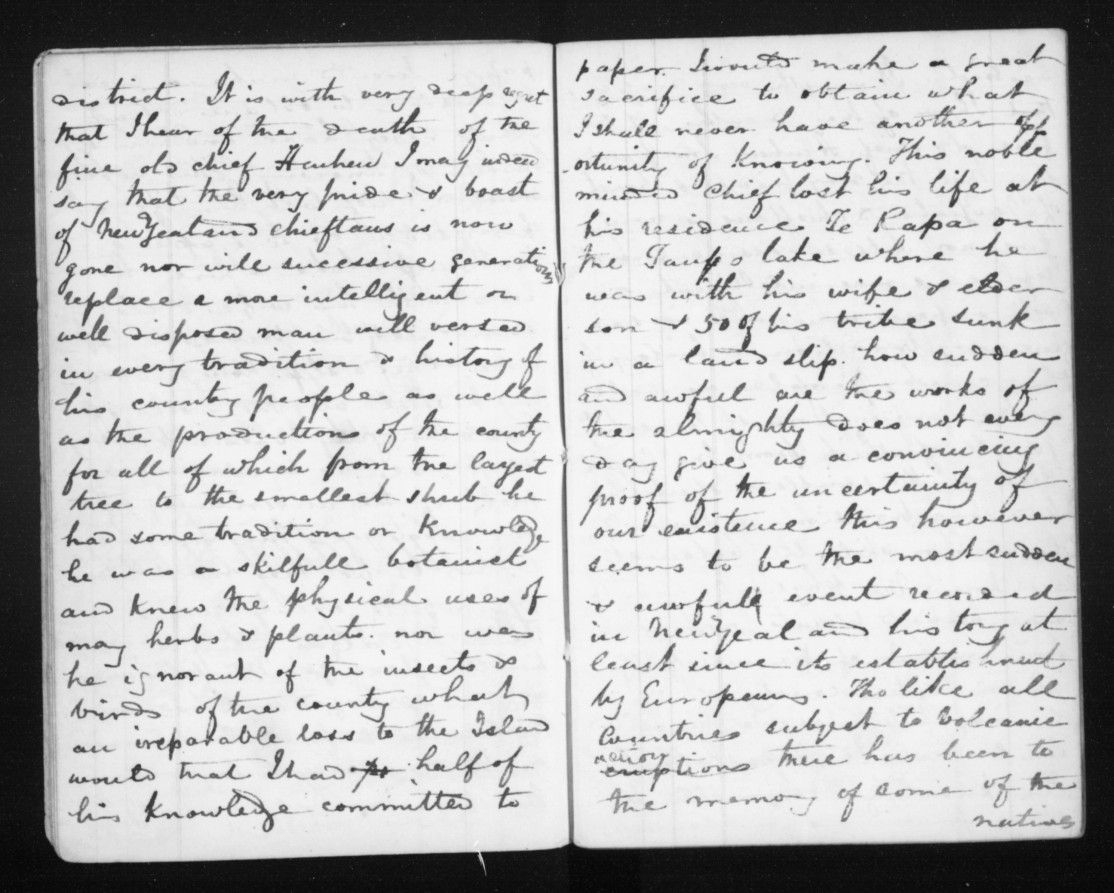 district. It is with very deep regret
that I hear of the death of the
fine old chief Heuheu I may indeed
say that the very pride & boast
of New Zealand chieftans is now
gone nor will sucessive generations
replace a more intelligent or
well disposed man well versed
in every tradition & history of
his county people as well
as the productions of the county
for all of which from the largest
tree to the smallest shrub he
had some tradition or Knowledge
he was a skilfull botanist
and Knew the physical uses of
may herbs & plants. nor was
he ignorant of the insects &
birds of the county what
an ireparable loss to the Island
would that I had half of
his Knowledge committed to
paper. I would make a great
sacrifice to obtain what
I shall never have another opp
ortunity of Knowing. This noble
minded chief lost his life at
his residence Te Rapa on
the Taupo lake where he
was with his wife & elder
son & 50 of his tribe sunk
in a land slip. how sudden
and awful are the works of
the almighty does not every
day give us a convincing
proof of the uncertainity of
our existence this however
seems to be the most sudden
& awfull event recorded
in New Zealand history at
least since its establishment
by Europeans. Tho like all
Countries subject to Volcanic
eruptions there has been to
the memory of some of the
natives